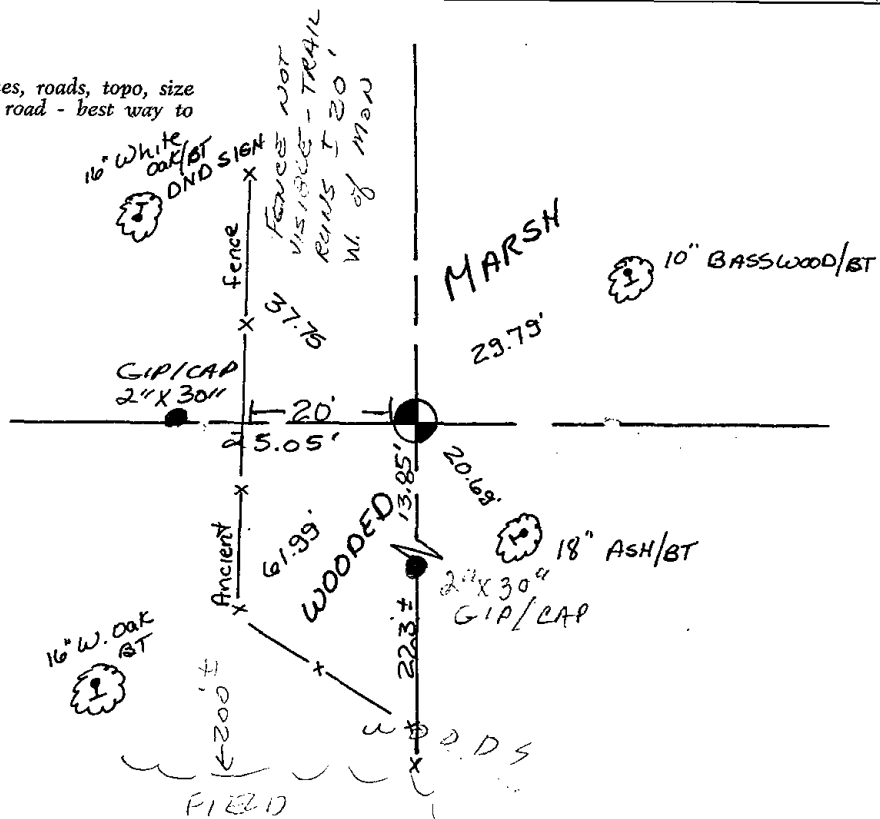 es, roads, topo, size
road - best way to
16" White
oak/BT
DND SIGN
FENCE NOT
VISIBLE - TRAIL
RUNS ± 20'
W. of MON
fence
37.75
MARSH
10" BASSWOOD/BT
29.79'
GIP/CAP
2" X 30"
20'
25.05'
13.85'
20.69'
Ancient
61.99'
WOODED
18" ASH/BT
2" X 30"
GIP/CAP
16" W. OAK
BT
±200'
WOODS
FIELD